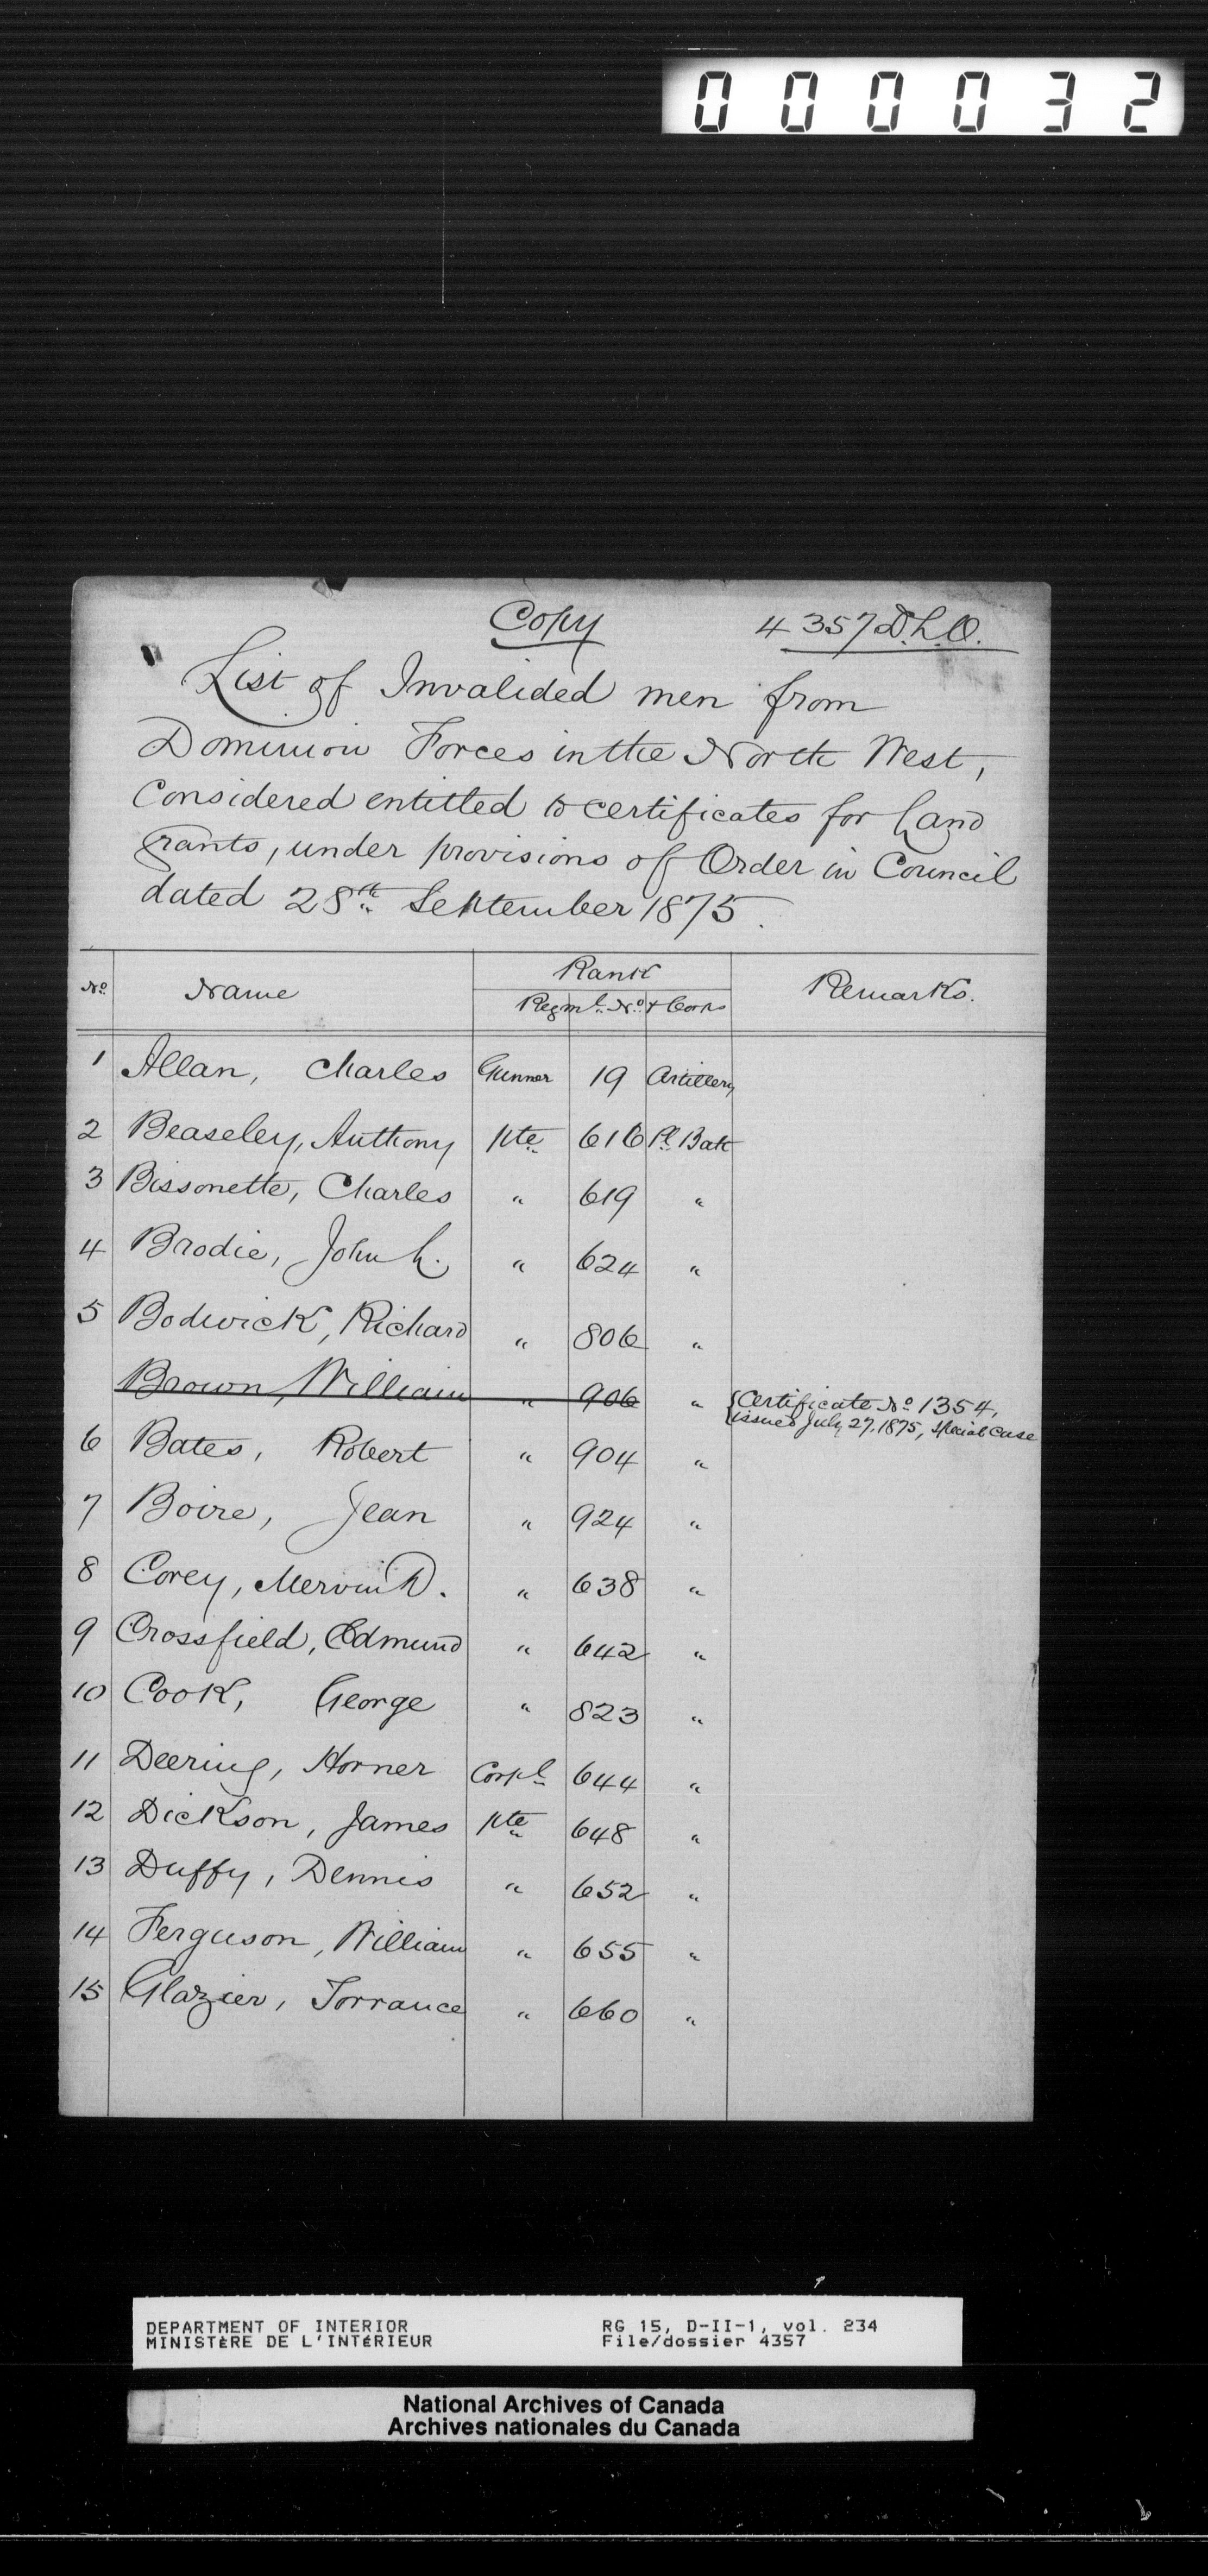 000032
Copy 4357 D.L.O.
List of Invalided men from
Dominion Forces in the North West,
Considered entitled to certificates for Land
Grants, under provisions of Order in Council
dated 28th September 1875.
No Name Rank Remarks.
Regml. No & Corps
1 Allan, Charles Gunner 19 Artillery
2 Beaseley, Anthony Pte 616 Pl. Batt
3 Bissonette, Charles " 619 "
4 Brodie, John L. " 624 "
5 Bodwick, Richard " 806 "
Brown, William " 906 " {Certificate No 1354,
issued July 27. 1875, Special Case
6 Bates, Robert " 904 "
7 Boire, Jean " 924 "
8 Corey, Mervin D. " 638 "
9 Crossfield, Edmund " 642 "
10 Cook, George " 823 "
11 Deering, Horner Corpl 644 "
12 Dickson, James Pte 648 "
13 Duffy, Dennis " 652 "
14 Ferguson, William " 655 "
15 Glazier, Torrance " 660 "
DEPARTMENT OF INTERIOR RG 15, D-II-1, vol. 234
MINISTÈRE DE L'INTÉRIEUR File/dossier 4357
National Archives of Canada
Archives nationales du Canada